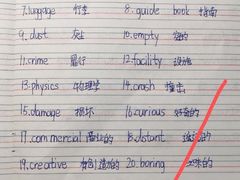 7. luggage 行李 8. guide book 指南
9. dust 灰尘 10. empty 空的
11. crime 罪行 12. facility 设施
13. physics 物理学 14. crash 撞击
15. damage 损坏 16. curious 好奇的
17. commercial 商业的 18. distant 遥远的
19. creative 有创造力的 20. boring